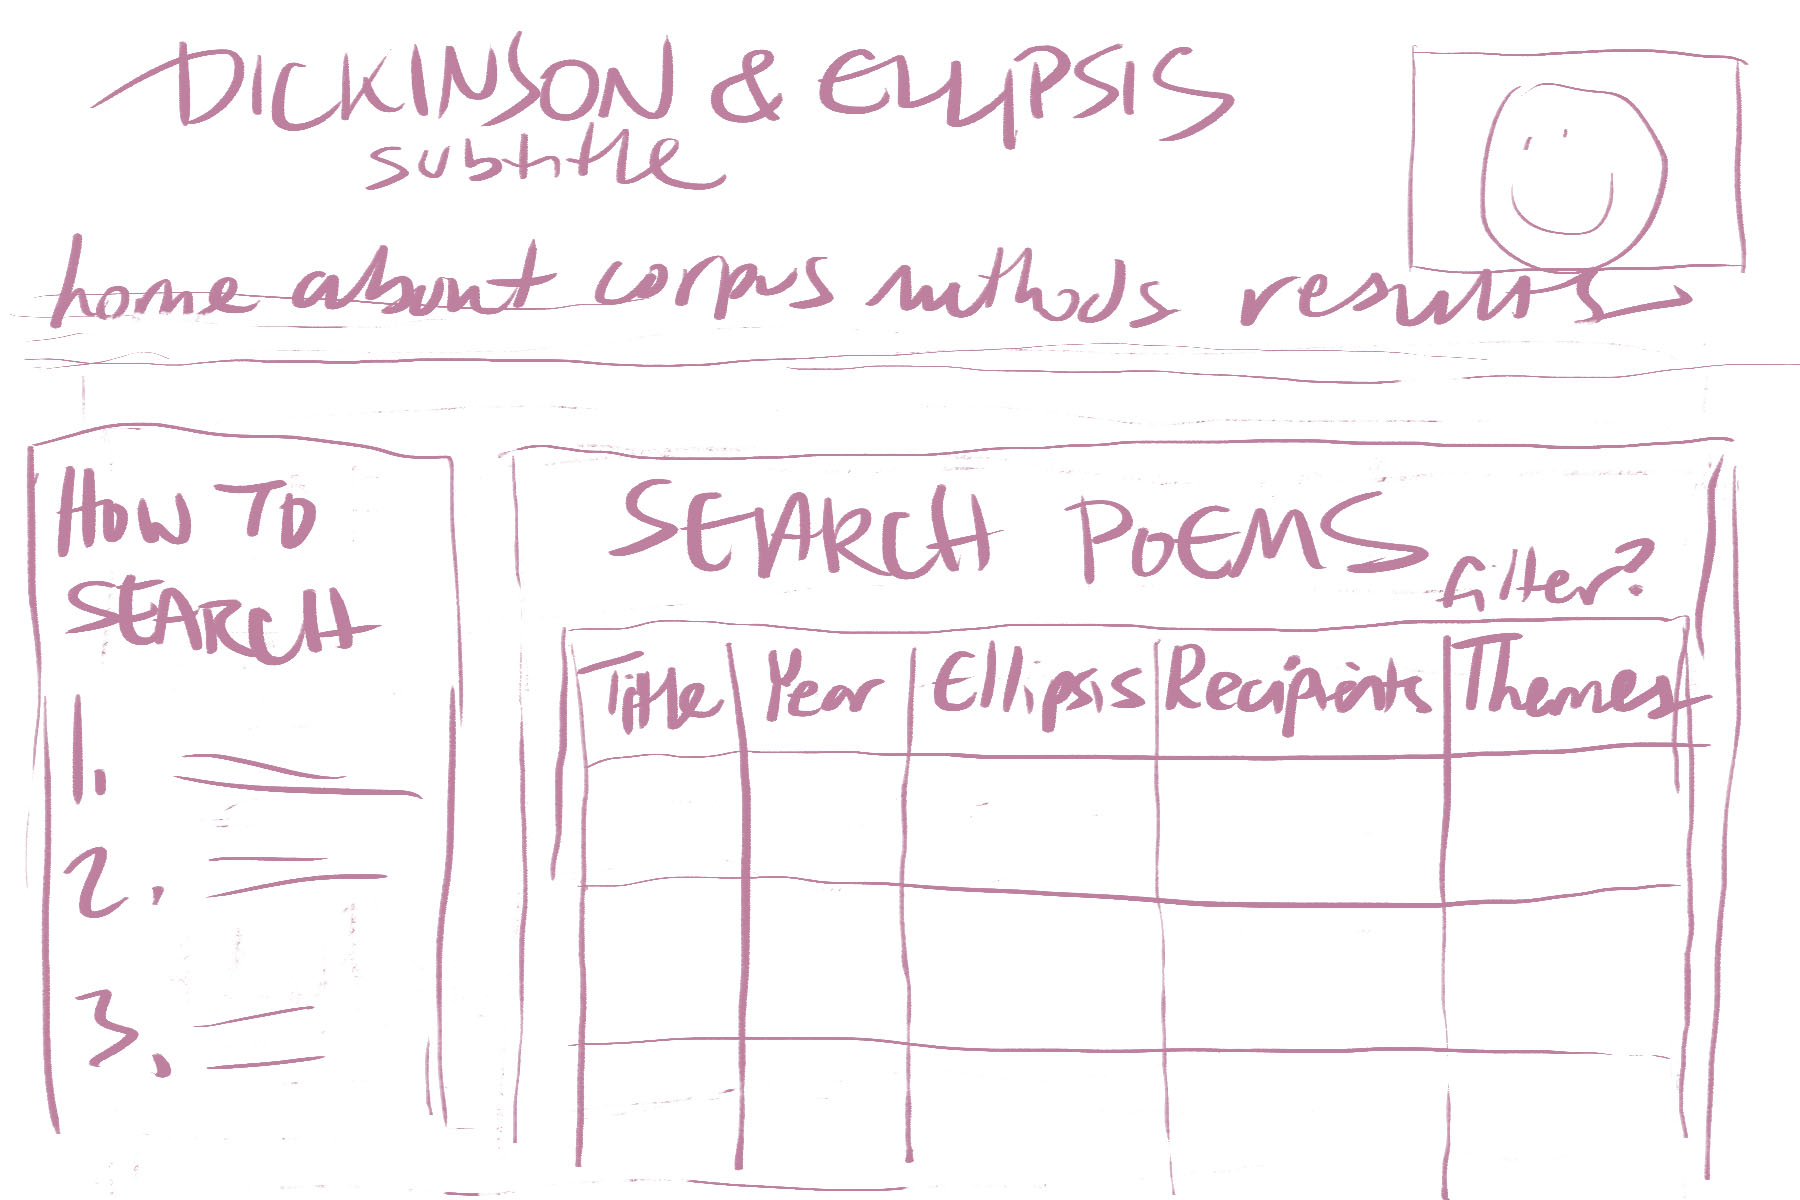 DICKINSON & ELLIPSIS
subtitle
home about corpus methods results
HOW TO
SEARCH
1.
2.
3.
SEARCH POEMS
filter?
Title Year Ellipsis Recipients Themes